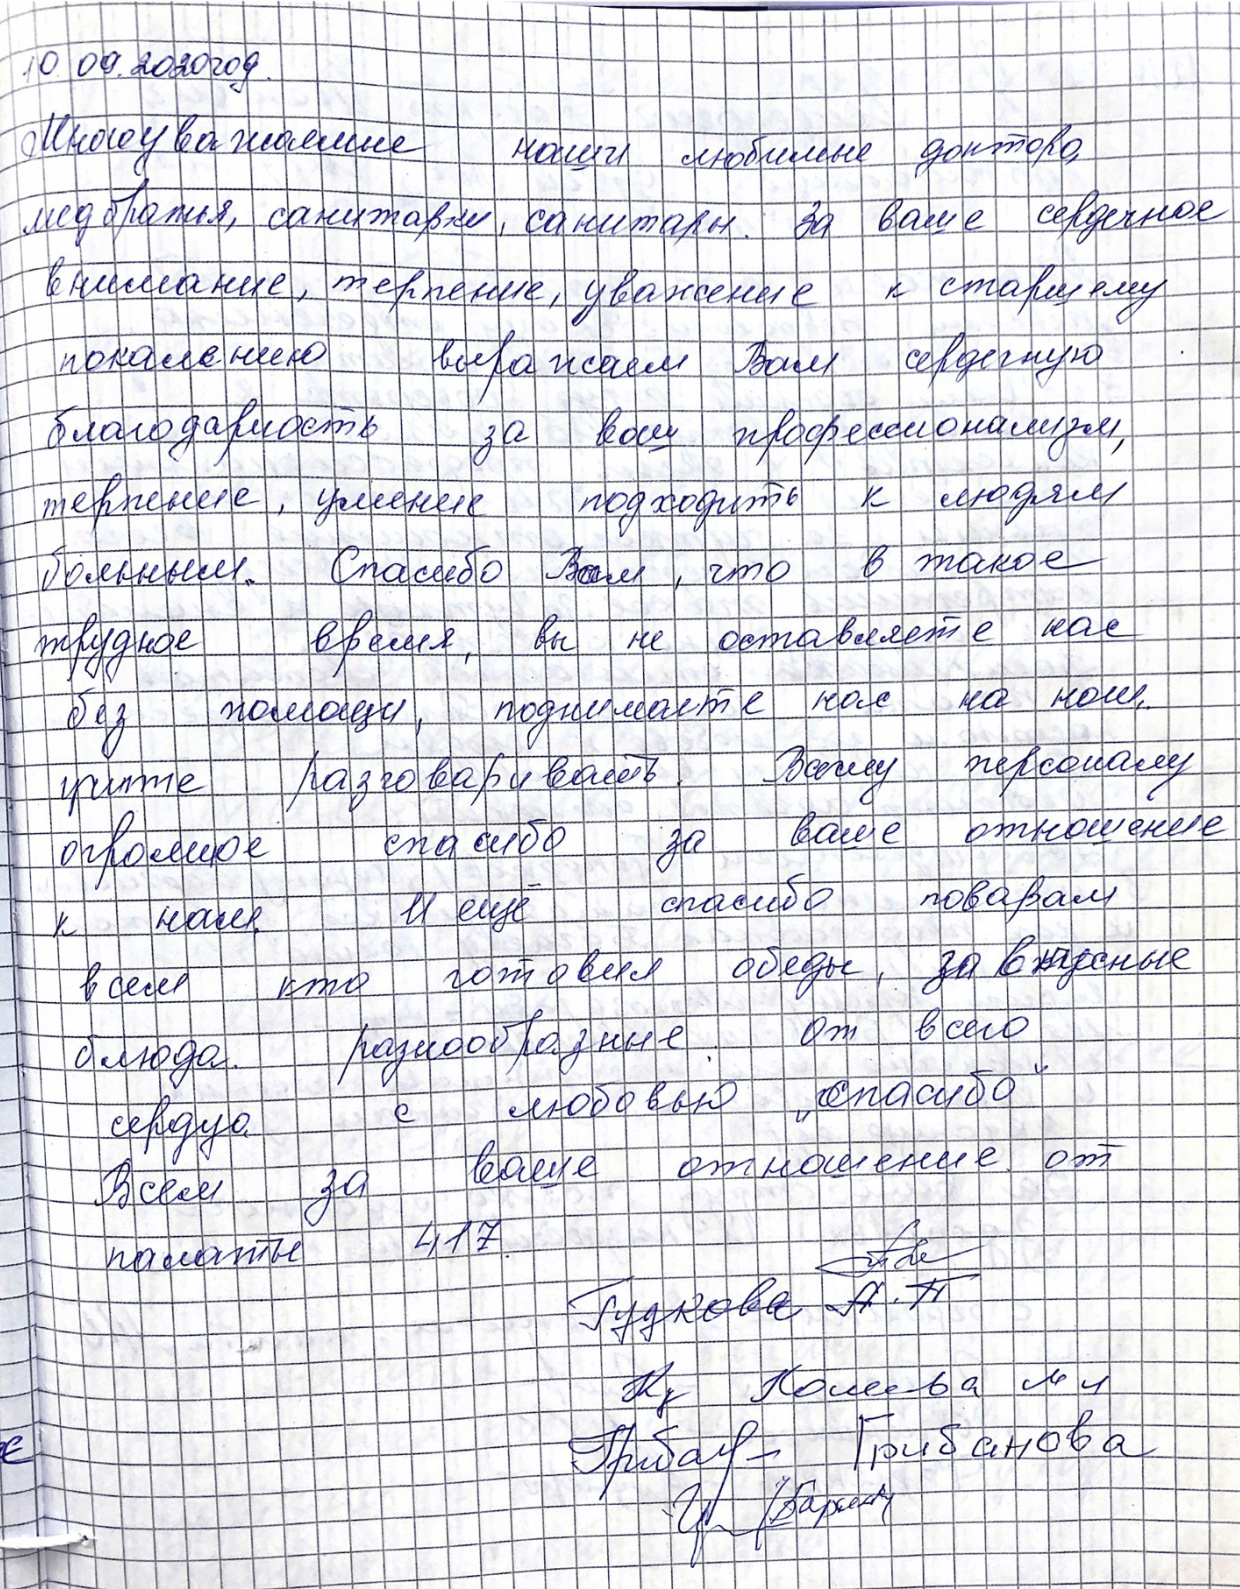 10.09.2020год.
Многоуважаемые наши любимые доктора,
медбратья, санитарки, санитары. За ваше сердечное
внимание, терпение, уважение к старшему
покалению выражаем Вам сердечную
благодарность за ваш профессионализм,
терпение, умение подходить к людям
больным. Спасибо Вам, что в такое
трудное время, вы не оставляете нас
без помощи, поднимаете нас на ноги,
учите разговаривать. Вашему персоналу
огромное спасибо за ваше отношение
к нам. И ещё спасибо поварам
всем кто готовил обеды, за вкусные
блюда. разнообразные. от всего
сердца с любовью „спасибо"
Всем за ваше отношение. от
палаты 417.
Гудкова А.П
Грибанова